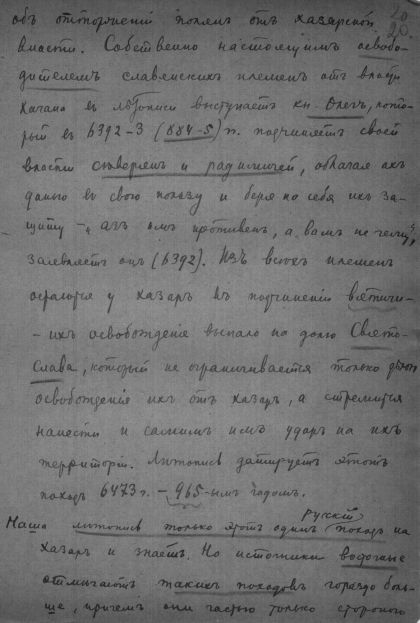 20
20.
объ отторженіи полянъ отъ хазарской
власти. Собственно настоящимъ освобо-
дителемъ славянскихъ племенъ отъ власти
Кагана въ лѣтописи выступаетъ кн. Олегъ, кото-
рый въ 6392-3 (884-5) г. подчиняетъ своей
власти сѣверянъ и радимичей, облагая ихъ
данью въ свою пользу и беря на себя ихъ за-
щиту – „азъ имъ противенъ, а вамъ не чему“,
заявляетъ онъ (6392). Изъ всѣхъ племенъ
остаются у хазаръ въ подчиненіи вятичи-
- ихъ освобожденіе выпало на долю Свято-
слава, который не ограничивается только дѣломъ
освобожденія ихъ отъ хазаръ, а стремится
нанести и самимъ имъ ударъ на ихъ
территоріи. Лѣтопись датируетъ этотъ
походъ 6473 г. – 965-ымъ годомъ.
Наша лѣтопись только этотъ одинъ русскій походъ на
Хазаръ и знаетъ. Но источники восточные
отмѣчаютъ такихъ походовъ гораздо боль-
ше, причемъ они частью только стороною